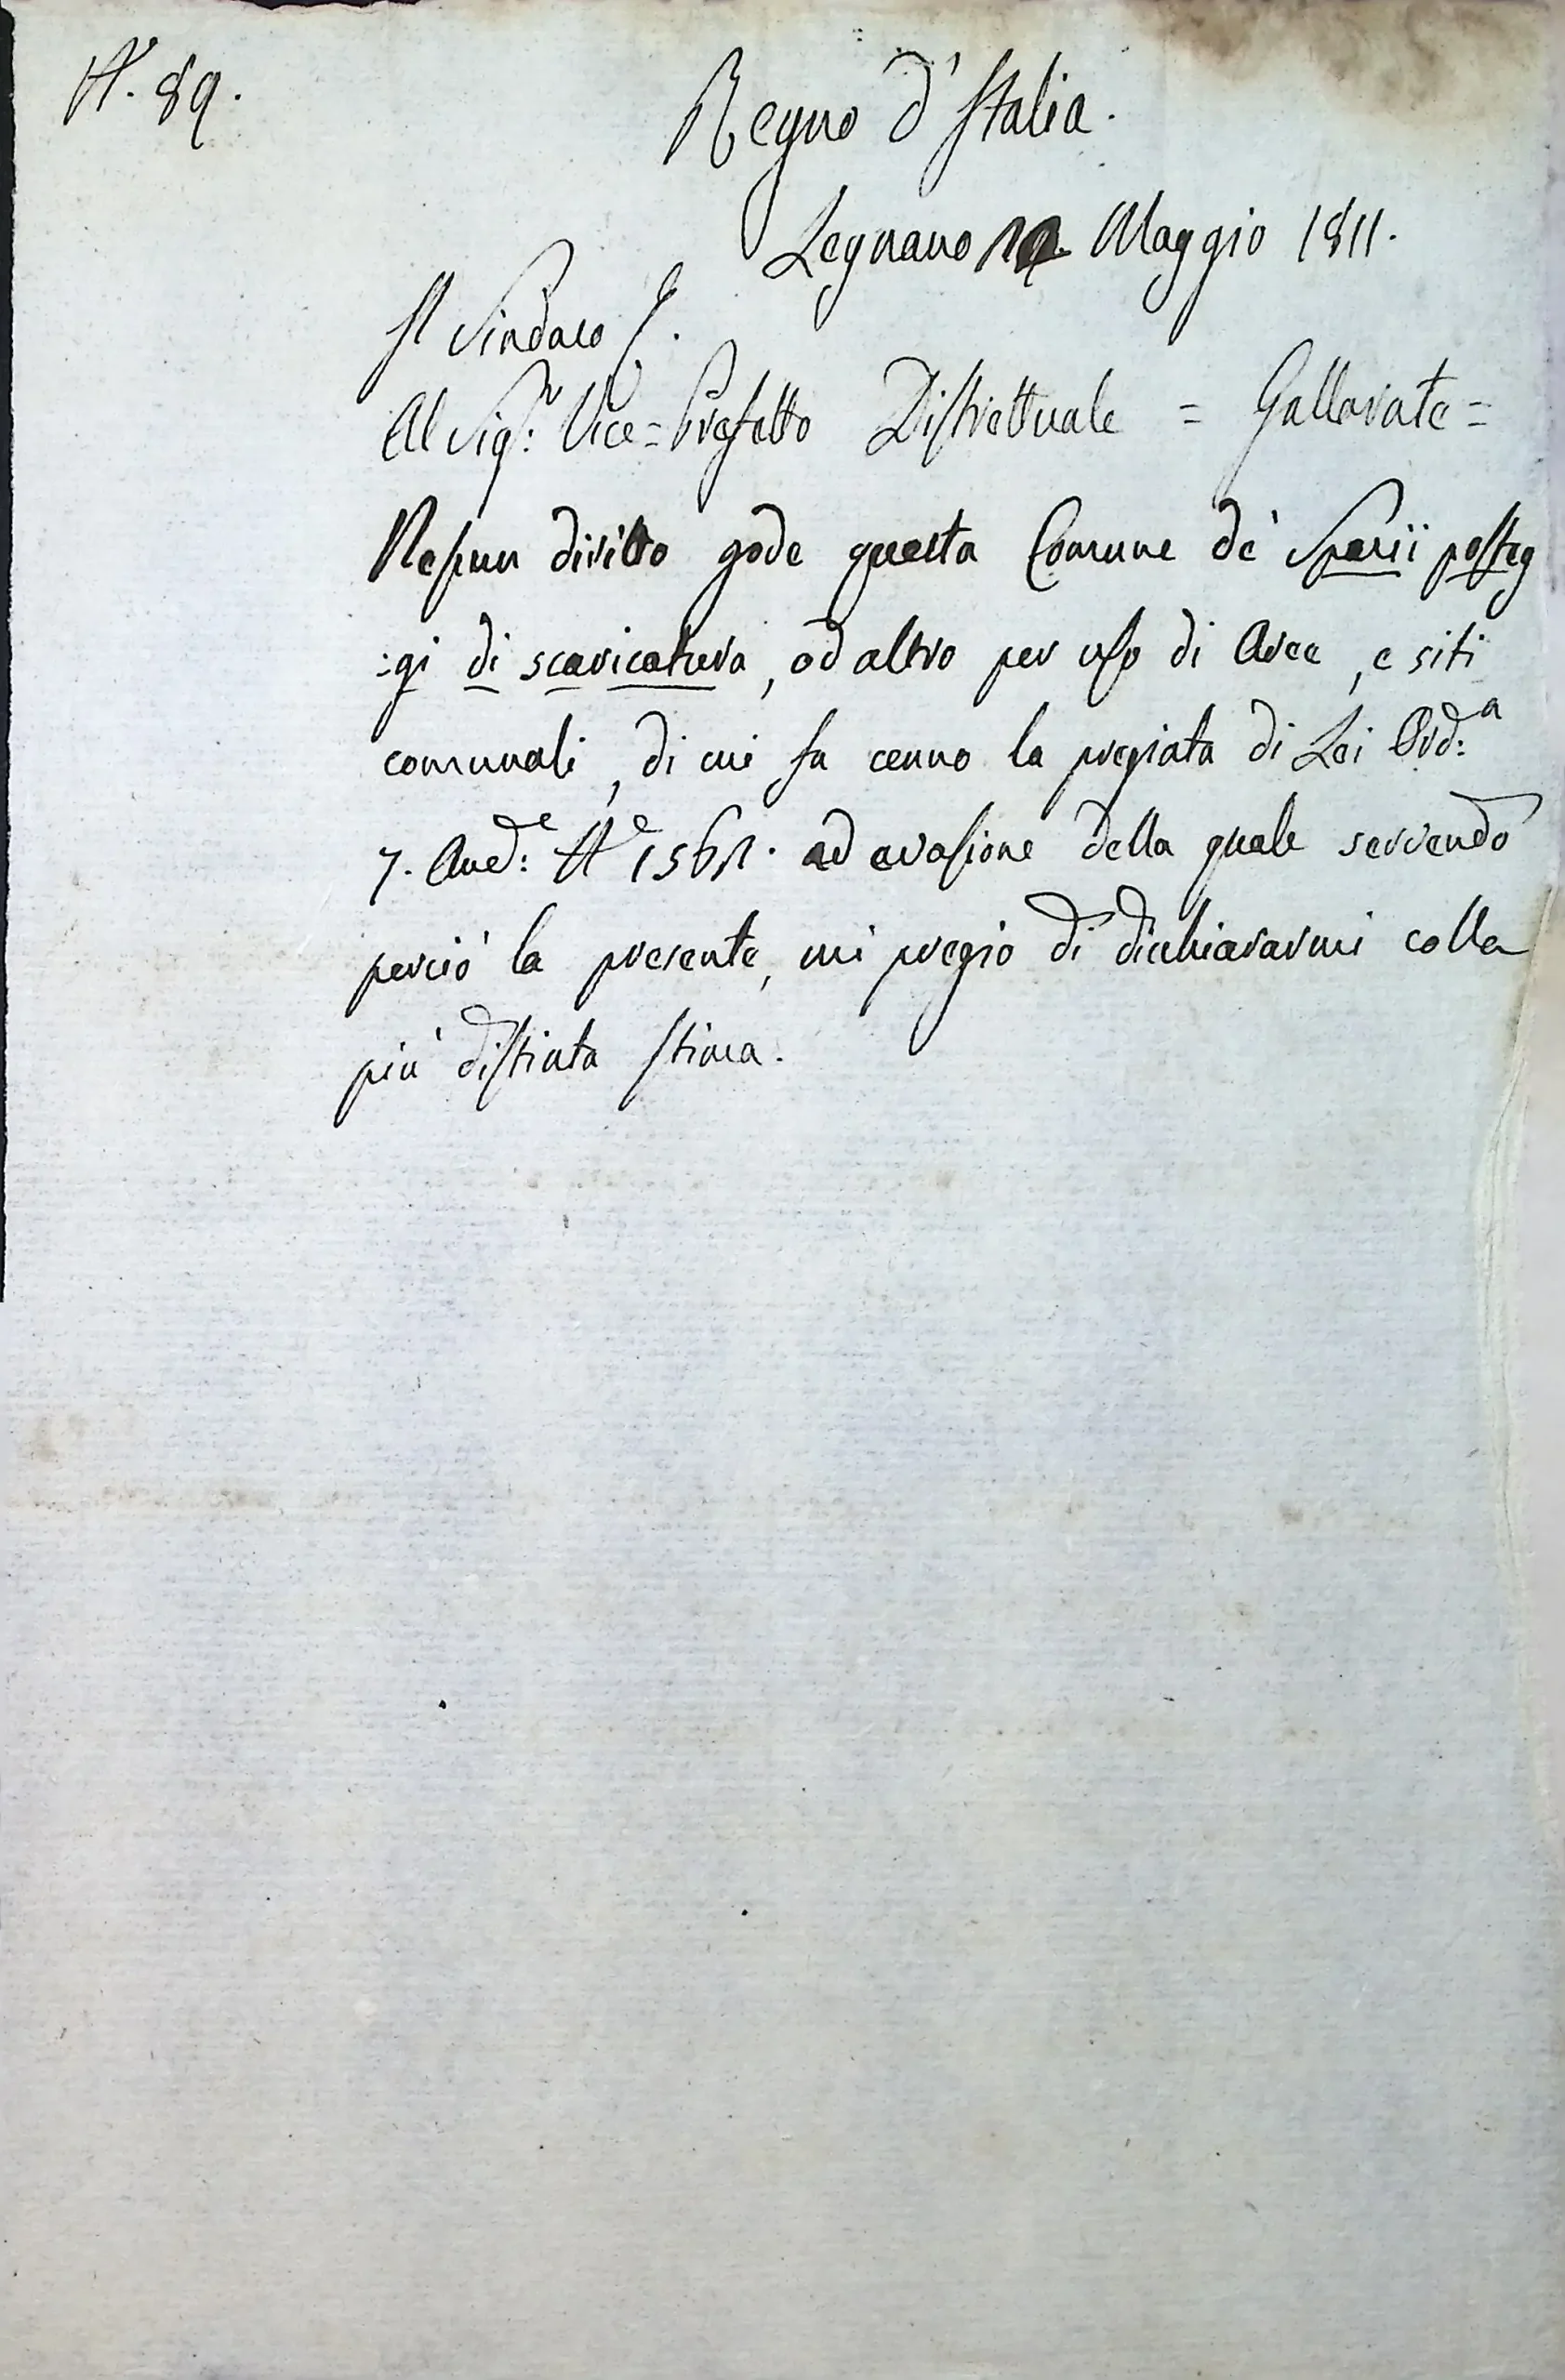 N. 89.
Regno d'Italia.
Legnano Maggio 1811.
Il Sindaco
Al Sigr: Vice=Prefetto Distrettuale = Gallarate =
Nessun diritto gode questa Comune de' posteg
:gi di scaricatura, od altro per uso di Aree, e siti
comunali, di cui fa cenno la pregiata di Lei Ord:a
7. And:e N.e ad evasione della quale servendo
perciò la presente, mi pregio di dichiararmi colla
più distinta stima.